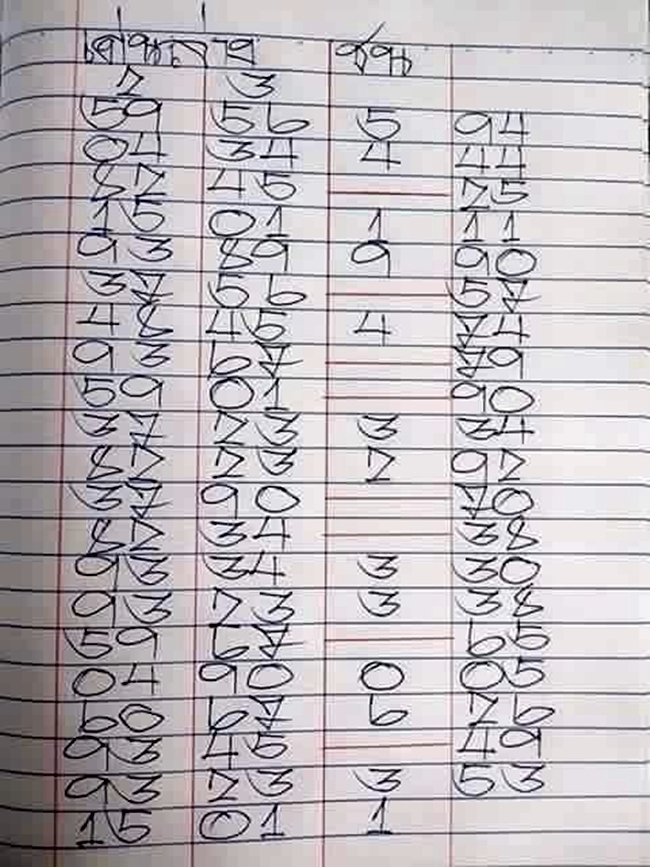 2 3
59 56 5 94
04 34 4 44
82 45 — 25
15 01 1 11
93 89 9 90
37 56 — 57
48 45 4 74
93 67 — 79
59 01 — 90
37 23 3 34
82 23 2 92
37 90 — 70
82 34 — 38
93 34 3 30
93 23 3 38
59 67 — 65
04 90 0 05
60 67 6 26
93 45 — 49
93 23 3 53
15 01 1